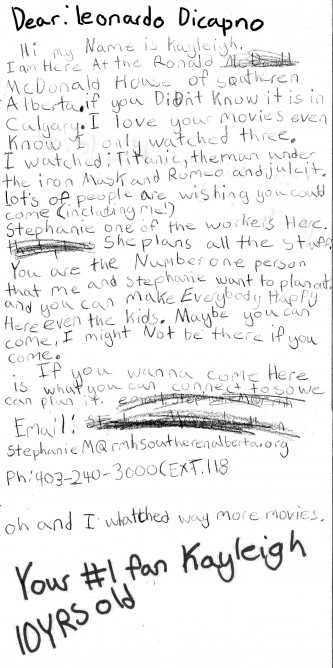 Dear: leonardo Dicaprio
Hi my Name is Kayleigh.
I am Here At the Ronald
McDonald House of southren
Alberta. if you Didn't Know it is in
Calgary. I love your movies even
Know I only watched three.
I watched; Titanic, the man under
the iron Mask and Romeo and juleit.
lot's of people are wishing you could
come (including me!)
Stephanie one of the workers Here.
She plans all the stuff.
You are the Number one person
that me and stephanie want to plan out
and you can make Everybody Happy
Here even the kids. Maybe you can
come, I might Not be there if you
come.
. If you wanna come Here
Is what you can connect to so we
can plan it.
Email:
stephanieM@rmhsoutherenalberta.org
Ph: 403-240-3000(EXT.118
oh and I whatched way more movies.
Your #1 fan Kayleigh
10YRS old